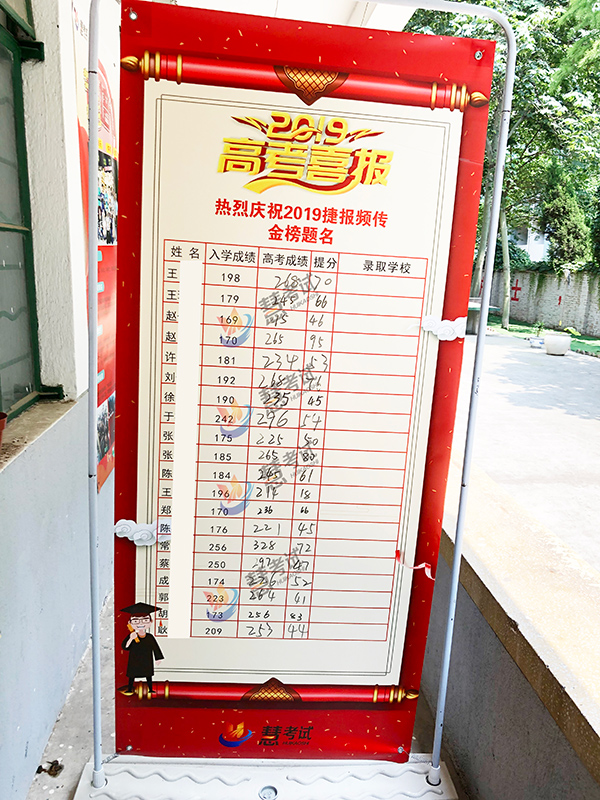 2019
高考喜报
热烈庆祝2019捷报频传
金榜题名
姓 名 入学成绩 高考成绩 提分 录取学校
王 198 268 70
王 179 245 66
赵 169 46
赵 170 265 95
许 181 234 53
刘 192 268 76
徐 190 235 45
于 242 296 54
张 175 225 50
张 185 265 80
陈 184 245 61
王 196 214 18
郑 170 236 66
陈 176 221 45
常 256 328 72
蔡 250 297 47
成 174 226 52
郭 223 264 41
胡 173 256 83
耿 209 253 44
慧考试